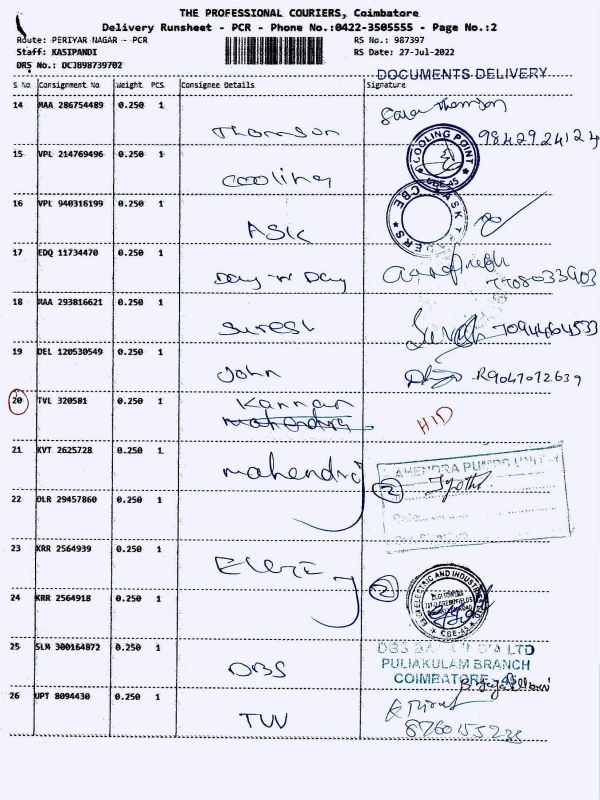 THE PROFESSIONAL COURIERS, Coimbatore
Delivery Runsheet - PCR - Phone No.:0422-3505555 - Page No.:2
Route: PERIYAR NAGAR - PCR RS No.: 987397
Staff: KASIPANDI RS Date: 27-Jul-2022
DRS No.: DCJ898739702
DOCUMENTS DELIVERY
S.No Consignment No Weight PCS Consignee Details Signature
14 MAA 286754489 0.250 1 Thomson
9842924124
15 VPL 214769496 0.250 1 Cooling COOLING POINT CBE-45
16 VPL 940316199 0.250 1 ASK ASK TRADERS CBE
17 EDQ 11734470 0.250 1 Day-N Day
7708033903
18 MAA 293816621 0.250 1 Suresh 7094464533
19 DEL 120530549 0.250 1 John 9047072639
20 TVL 320581 0.250 1 Kannan HID
mahendra
21 KVT 2625728 0.250 1 mahendra 2 Jyothi
22 DLR 29457860 0.250 1
23 KRR 2564939 0.250 1
24 KRR 2564918 0.250 1 2 ELECTRIC AND CBE-45
25 SLM 300164872 0.250 1 DBS DBS LTD
PULIAKULAM BRANCH
COIMBATORE - 45
26 UPT 8094430 0.250 1 TUV